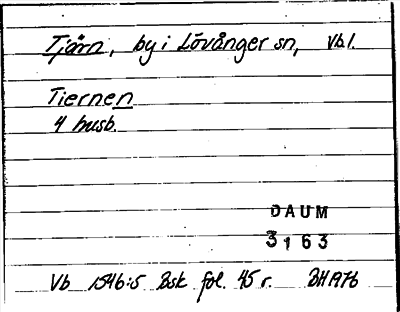 Tjärn, by i Lövånger sn, Vbl.
Tiernen
4 husb.
DAUM
3163
Vb 1546:5 Bsk fol. 45 r. BH 1976